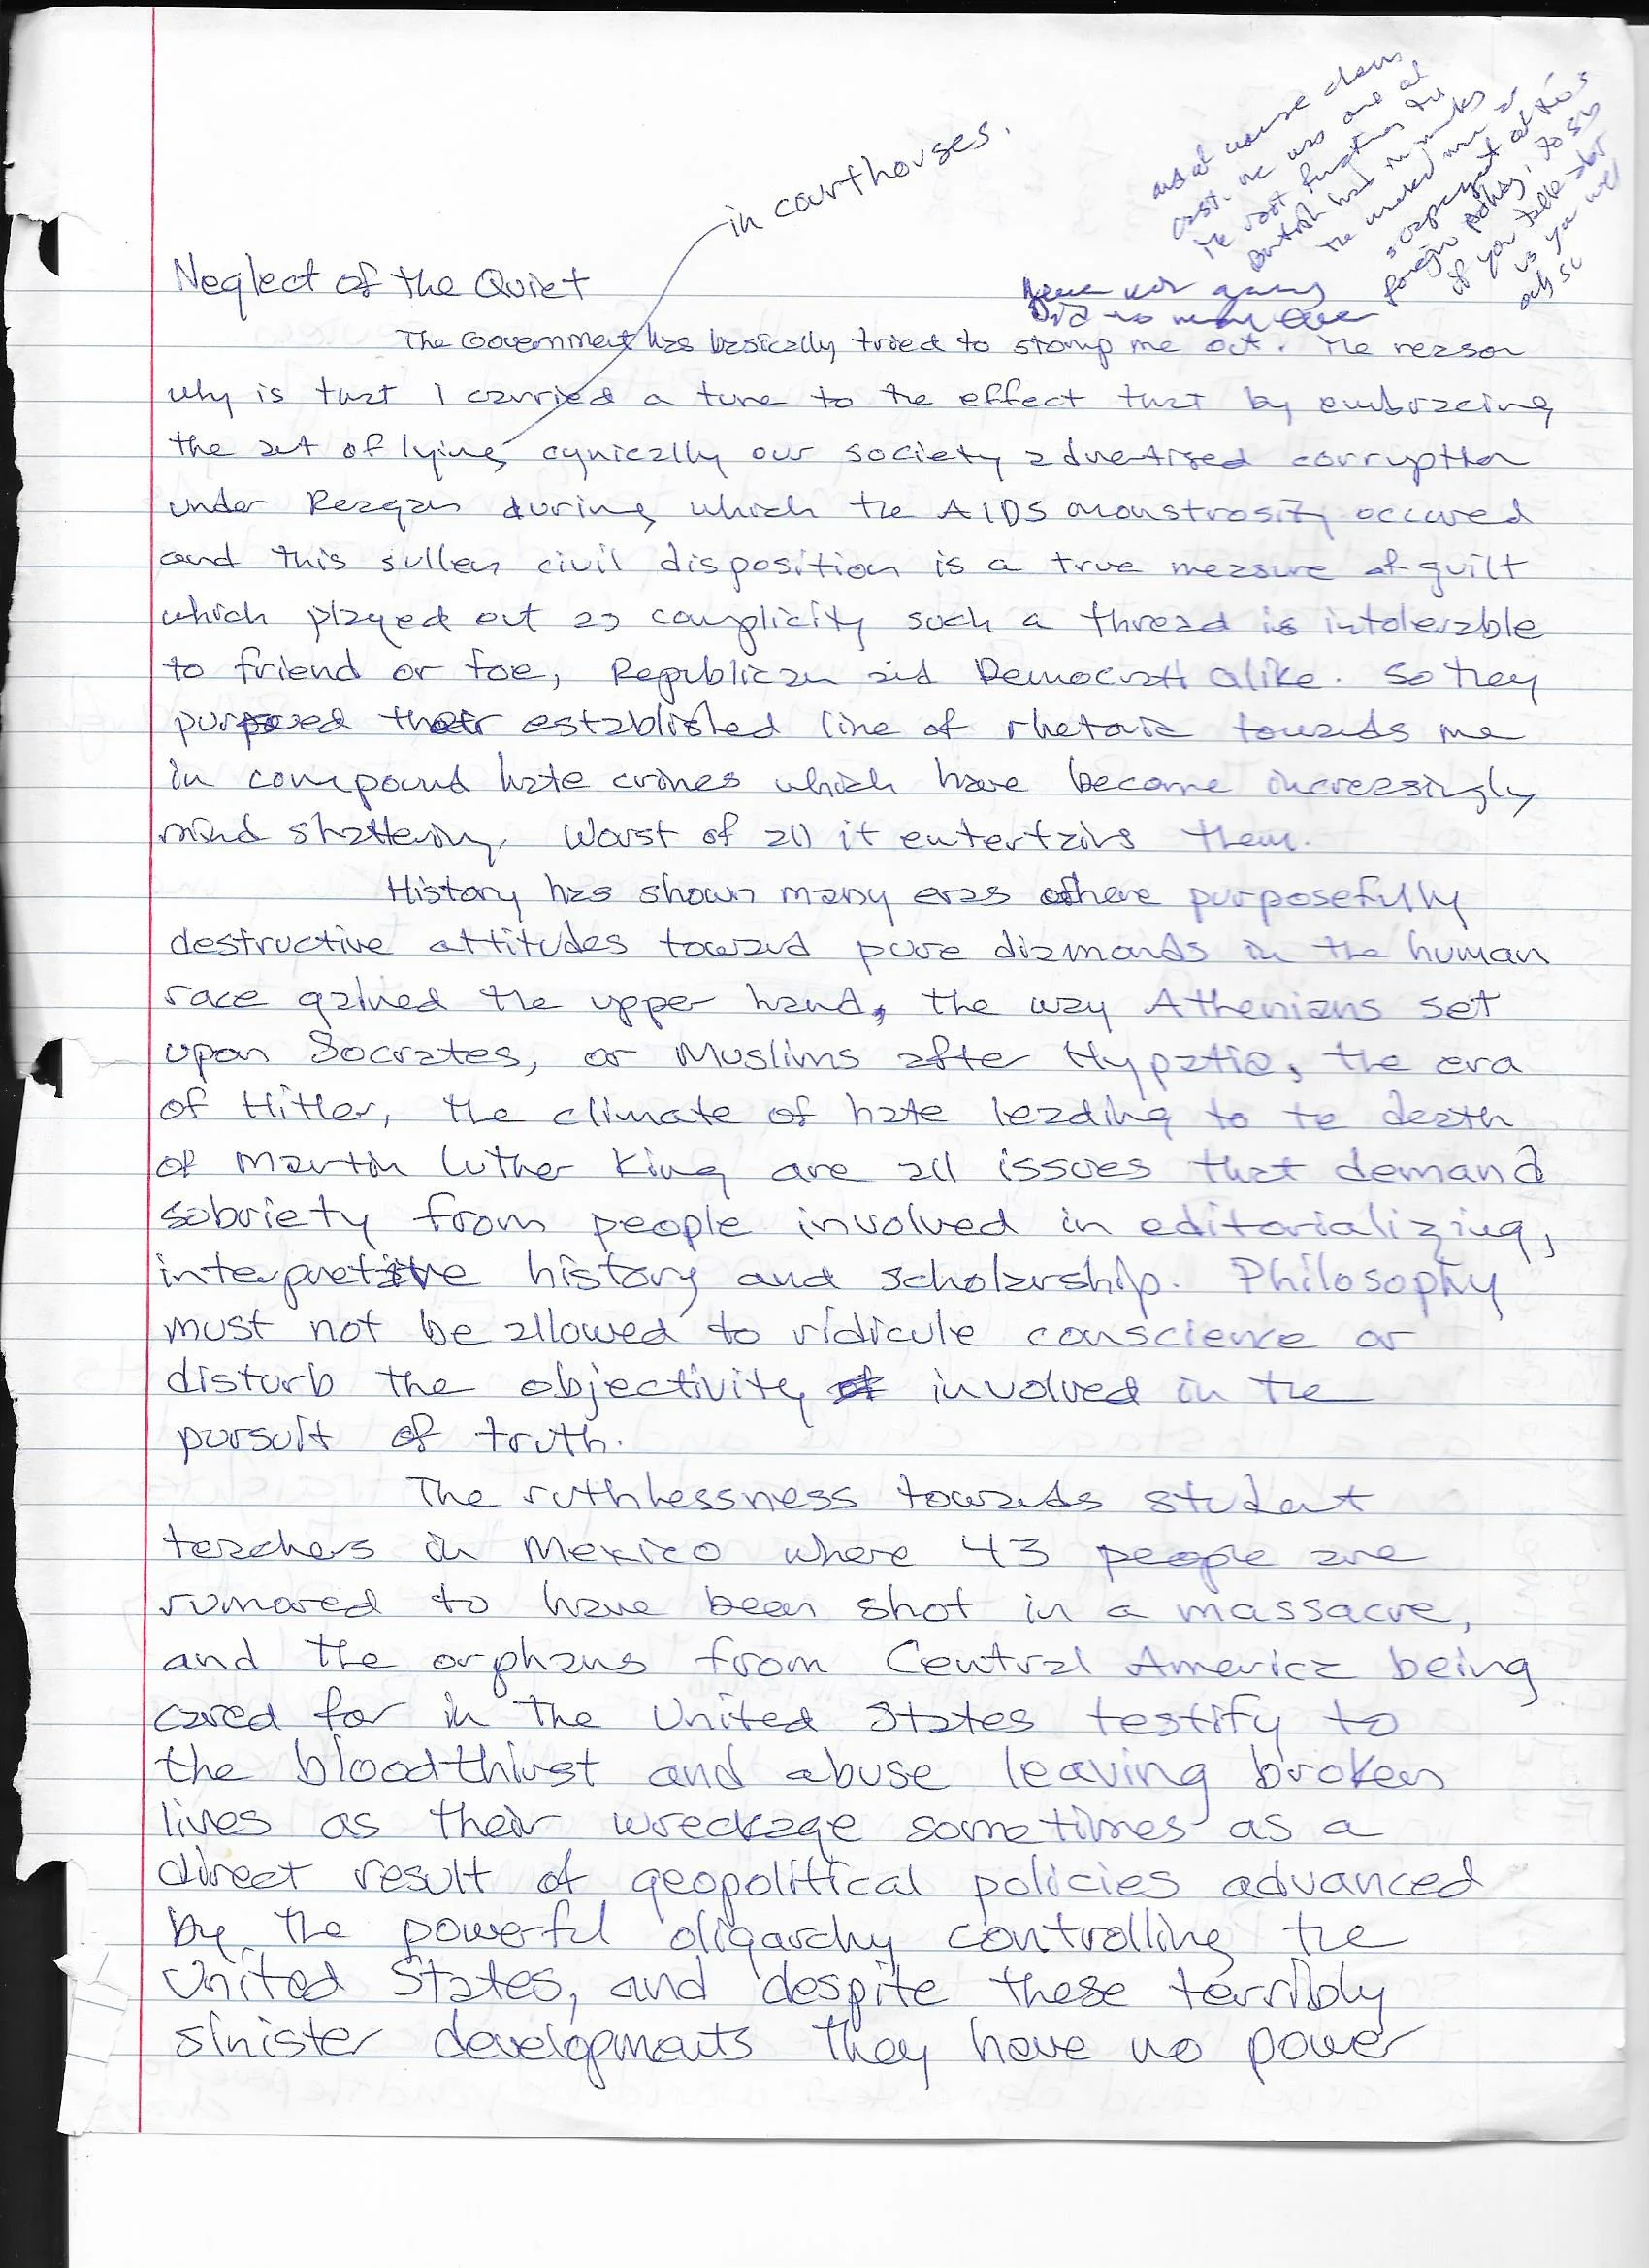 in courthouses.
Neglect of the Quiet
The Government has basically tried to stomp me out. The reason
why is that I carried a tune to the effect that by embracing
the art of lying, cynically our society advertised corruption
under Reagan during which the AIDS monstrosity occured
and this sullen civil disposition is a true measure of guilt
which played out as complicity such a thread is intolerable
to friend or foe, Republican and Democratt alike. So they
pursued their established line of rhetoric towards me
in compound hate crimes which have become increasingly
mind shattering. Worst of all it entertains them.
History has shown many eras where purposefully
destructive attitudes toward pure diamonds in the human
race gained the upper hand, the way Athenians set
upon Socrates, or Muslims after Hypatia, the era
of Hitler, the climate of hate leading to te death
of Martin Luther King are all issues that demand
sobriety from people involved in editorializing,
interpretitve history and scholarship. Philosophy
must not be allowed to ridicule conscience or
disturb the objectivity involved in the
pursuit of truth.
The ruthlessness towards student
teachers in Mexico where 43 people are
rumored to have been shot in a massacre,
and the orphans from Central America being
cared for in the United States testify to
the bloodthirst and abuse leaving broken
lives as their wreckage sometimes as a
direct result of geopolitical policies advanced
by the powerful oligarchy controlling the
United States, and despite these terribly
sinister developments they have no power